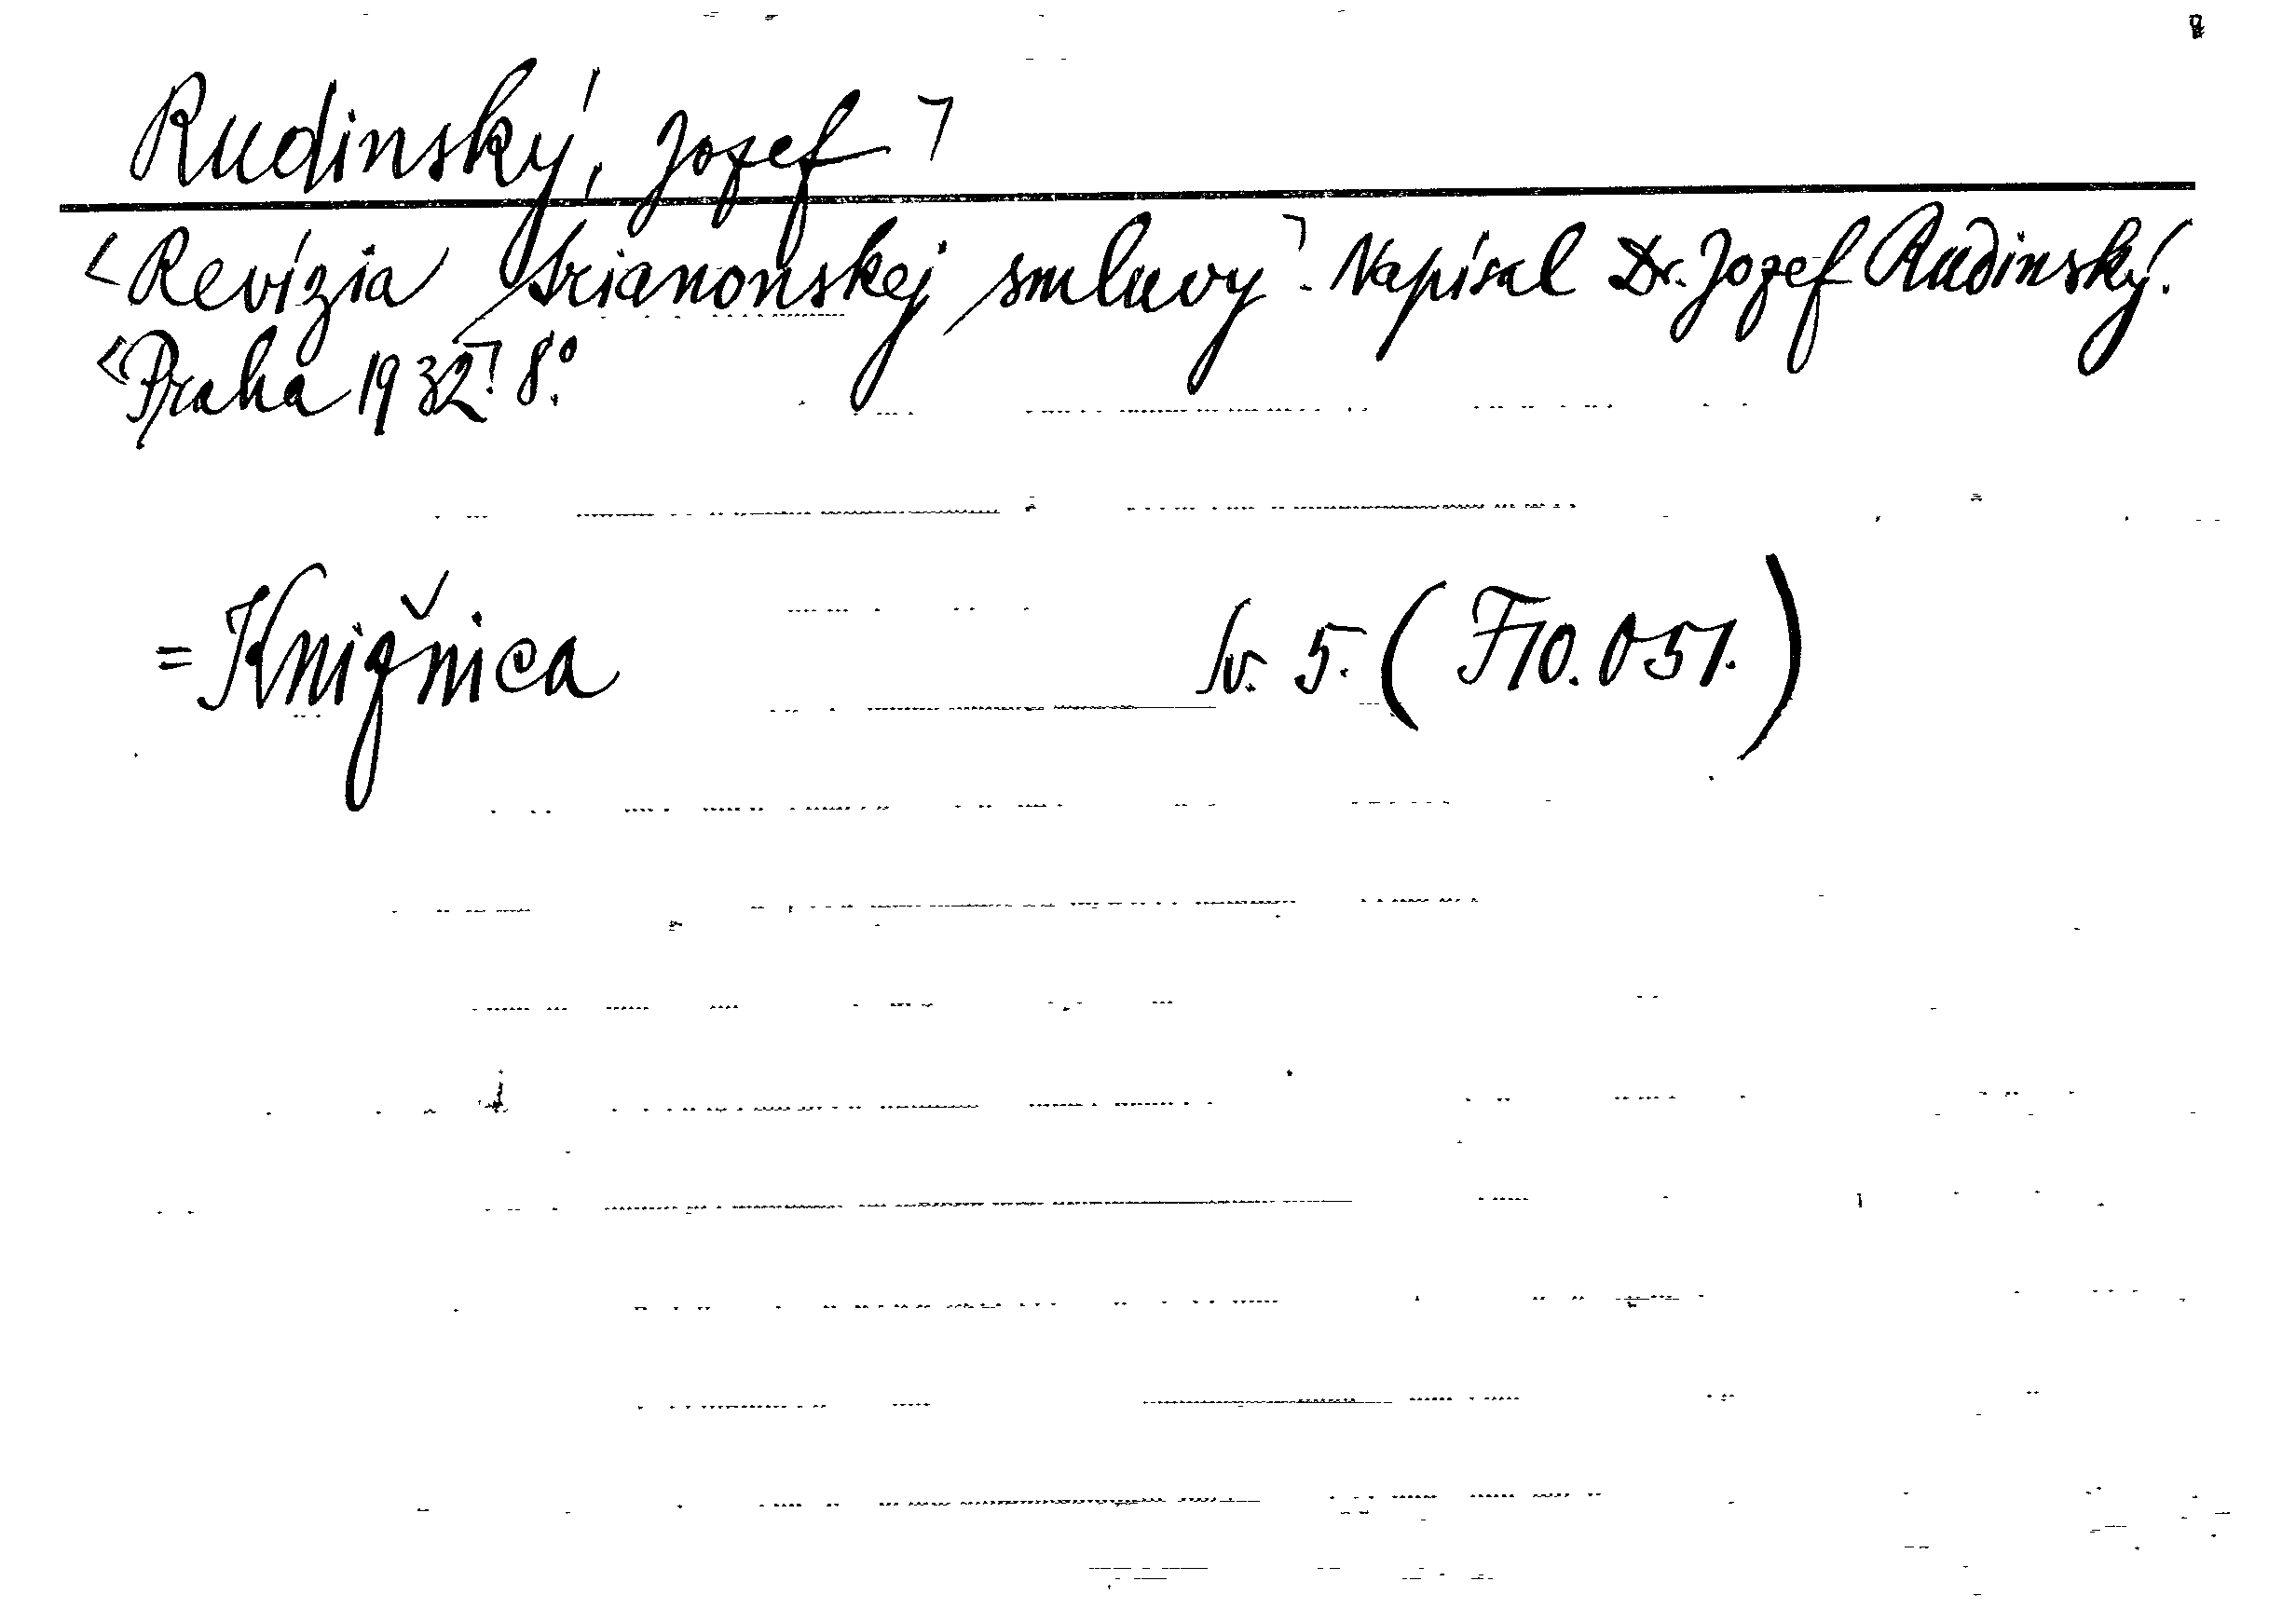 Rudinský, Jozef ㄱ
<Revízia trianonskej smluvy ㄱ. Napísal Dr. Jozef Rudinský.
<Praha 1932ㄱ. 8°.
=Knižnica Sv. 5. (F10.051.)